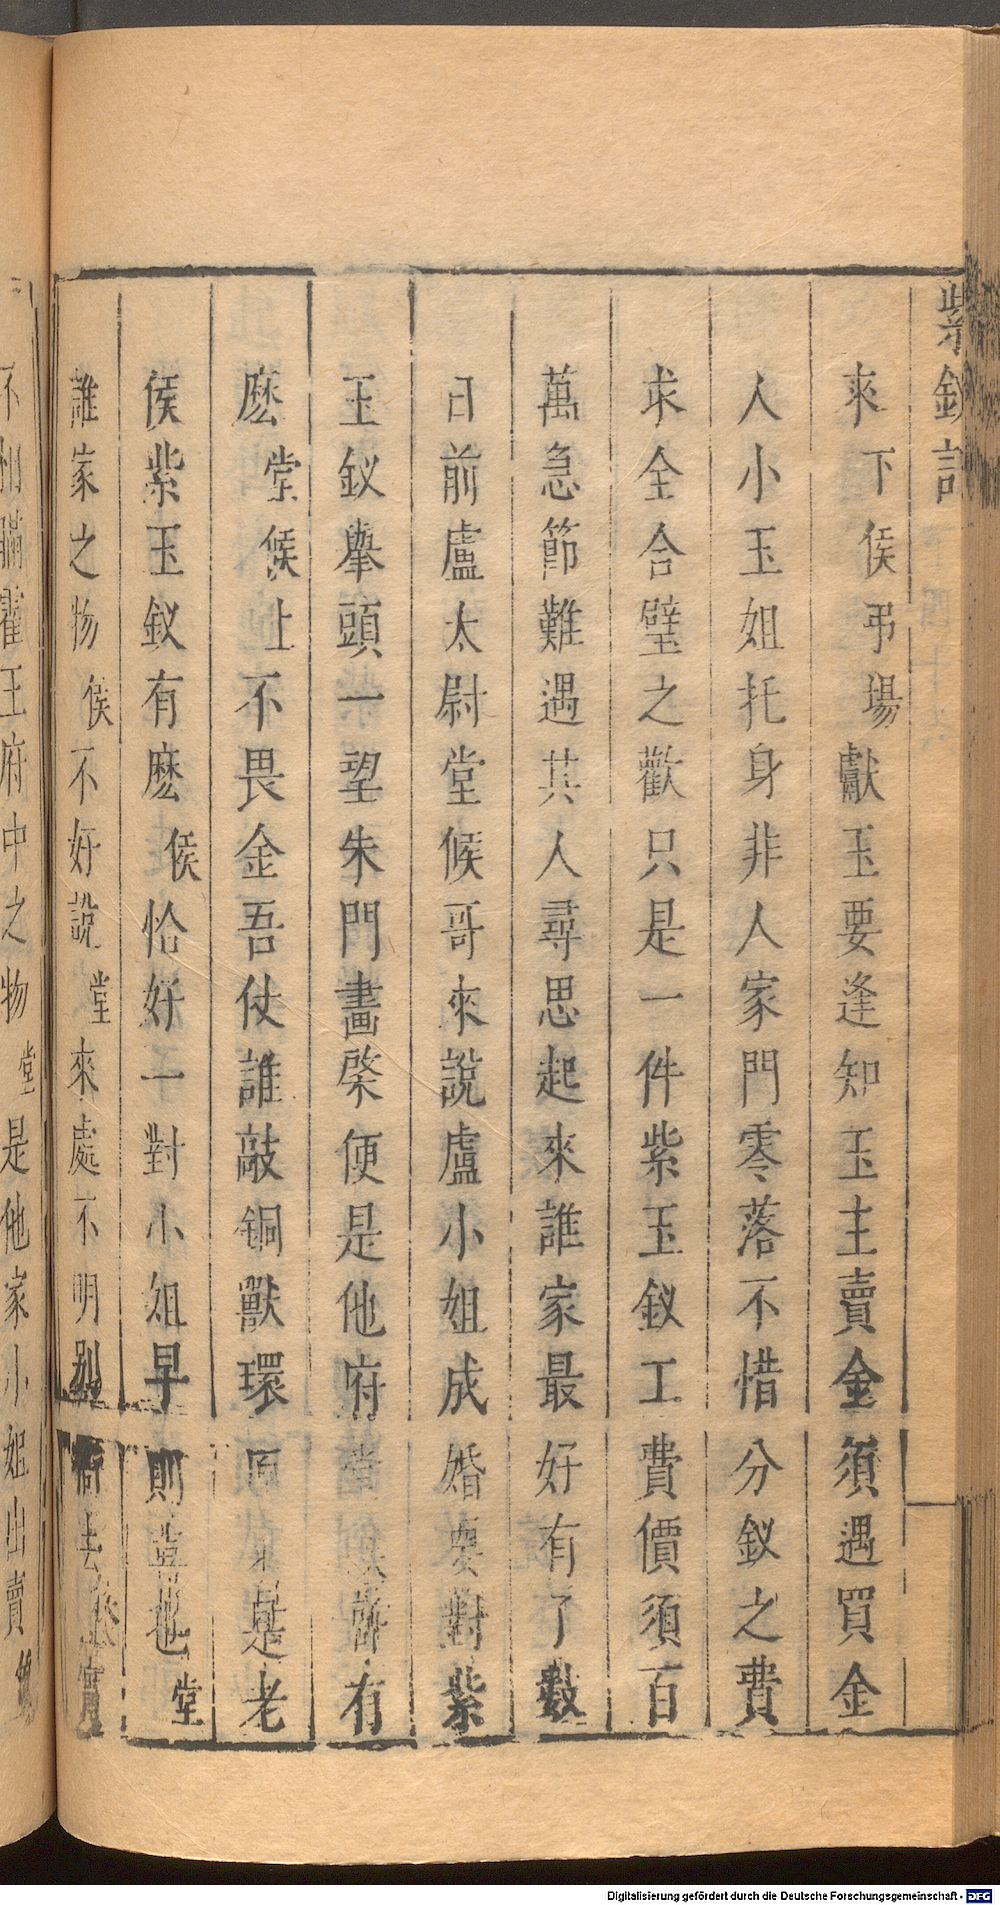 紫釵記
來下侯弔場獻玉要逢知玉主賣金須遇買金
人小玉姐托身非人家門零落不惜分釵之費
求全合璧之歡只是一件紫玉釵工費價須百
萬急節難遇其人尋思起來誰家最好有了數
日前盧太尉堂候哥來說盧小姐成婚要對紫
玉釵擧頭一望朱門畫棨便是他府堂側早有
麽堂侯上不畏金吾仗誰敲铜獸環原來是老
侯紫玉釵有麽侯恰好一對小姐早則喜也堂
誰家之物侯不好說堂來處不明別衙去來實
不相瞞霍王府中之物堂是他家小姐出賣
Digitalisierung gefördert durch die Deutsche Forschungsgemeinschaft - DFG